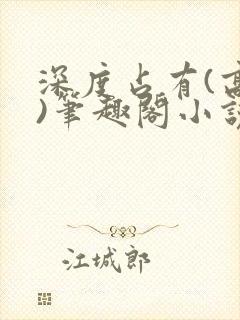 深度占有(高
)笔趣阁小说
江城郎